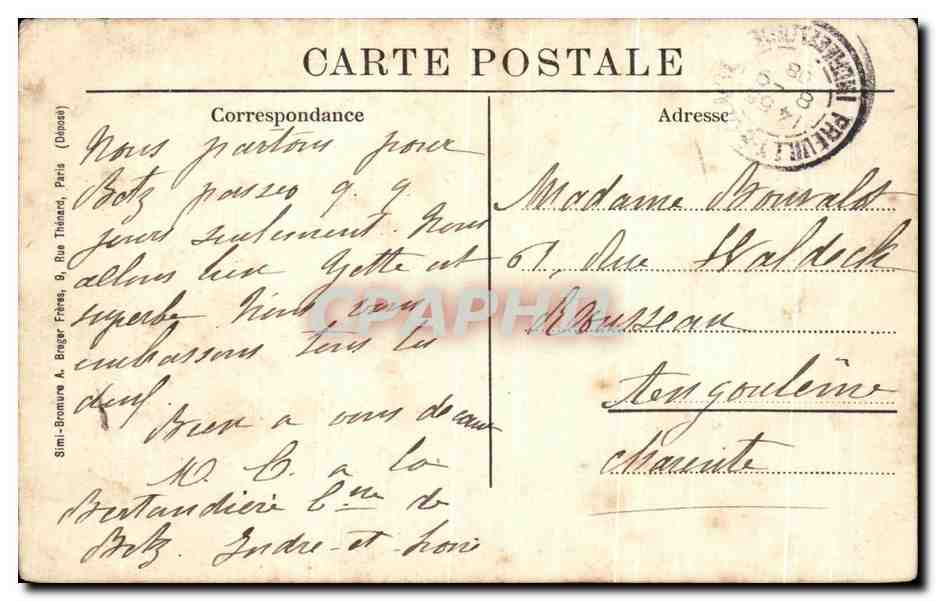 CARTE POSTALE
Correspondance
Nous partons pour
Betz passer q. q
jours seulement. Nous
allons bien Yette est
superbe Nous vous
embrassons tous les
deux.
Bien a vous de cœur
M. C. a la
Bertaudière Cne de
Betz. Indre-et-Loire
Adresse
Madame Bouvalot
61, Rue Waldeck
Rousseau
Angoulême
Charente
PREUILLY
Simi-Bromure A. Breger Frères, 9, Rue Thénard, Paris (Déposé)
CPAPHIL